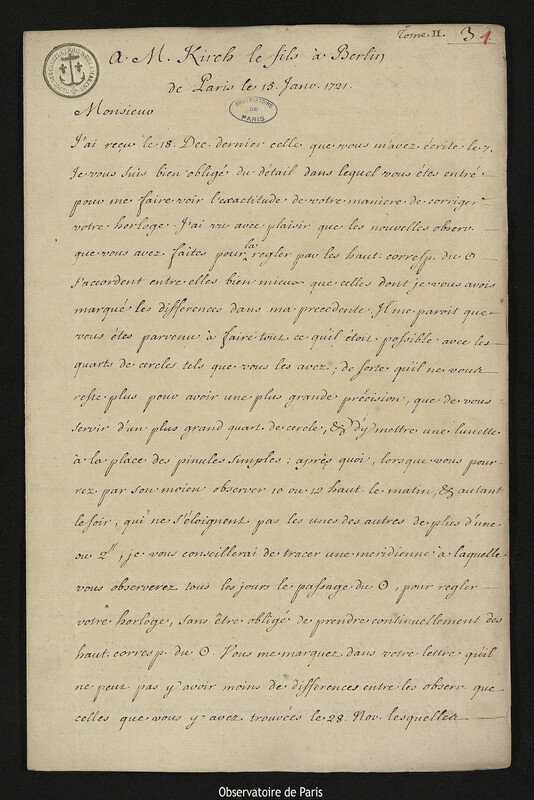 Tome. II. 31
A M. Kirch le fils à Berlin
de Paris le 15. Janv. 1721.
OBSERVATOIRE DE PARIS
Monsieur
J'ai reçu le 18. Dec. dernier celle que vous m'avez écrite le 7.
Je vous suis bien obligé du détail dans lequel vous êtes entré
pour me faire voir l'exactitude de votre maniere de corriger
votre horloge. J'ai vu avec plaisir que les nouvelles observ.
que vous avez faites pour la regler par les haut. corresp. du ☉
s'accordent entre elles bien mieux que celles dont je vous avois
marqué les differences dans ma precedente. Il me paroit que
vous êtes parvenu à faire tout ce qu'il étoit possible avec les
quarts de cercles tels que vous les avez; de sorte qu'il ne vous
reste plus pour avoir une plus grande précision, que de vous
servir d'un plus grand quart de cercle, & d'y mettre une lunette
à la place des pinules simples: après quoi, lorsque vous pour-
rez par son moien observer 10 ou 12 haut. le matin, & autant
le soir, qui ne s'éloignent pas les unes des autres de plus d'une
ou 2", je vous conseillerai de tracer une meridienne à laquelle
vous observerez tous les jours le passage du ☉, pour regler
votre horloge, sans être obligé de prendre continuellement des
haut. corresp. du ☉. Vous me marquez dans votre lettre qu'il
ne peut pas y avoir moins de differences entre les observ. que
celles que vous y avez trouvées le 28. Nov. lesquelles
Observatoire de Paris